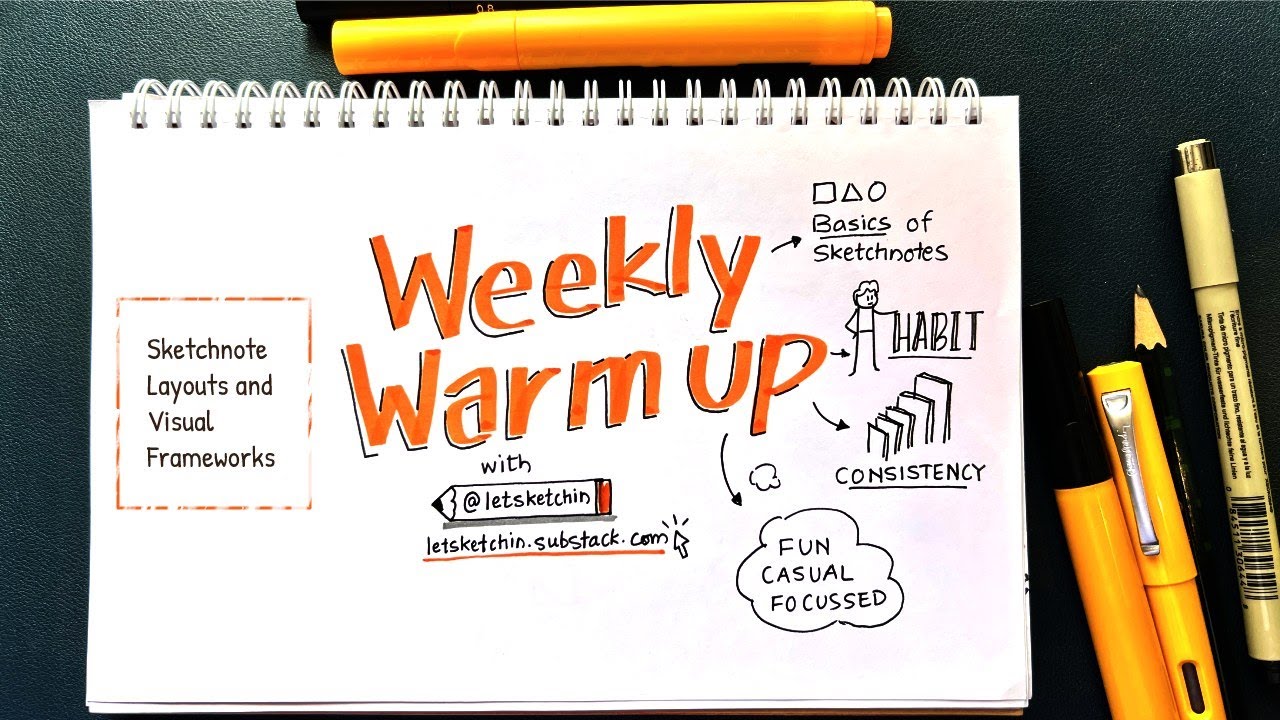 0.8
Weekly
Warm up
with
@letsketchin
letsketchin.substack.com
Sketchnote
Layouts and
Visual
Frameworks
Basics of
Sketchnotes
HABIT
CONSISTENCY
FUN
CASUAL
FOCUSSED